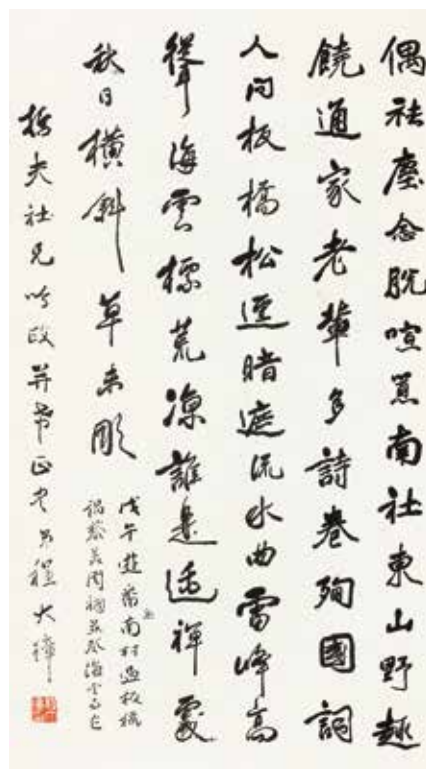 偶祛塵念脫喧囂南社東山野趣
饒通家老輩多詩卷殉國詞
人問板橋松逕暗遮流水曲雷峰高
聳海雲標荒涼誰是逃禪處
秋日橫斜草未彫
戊午遊番南村過板橋
謁黎美周祠並登海雲寺作
夫社兄吟政并希正 程大璋